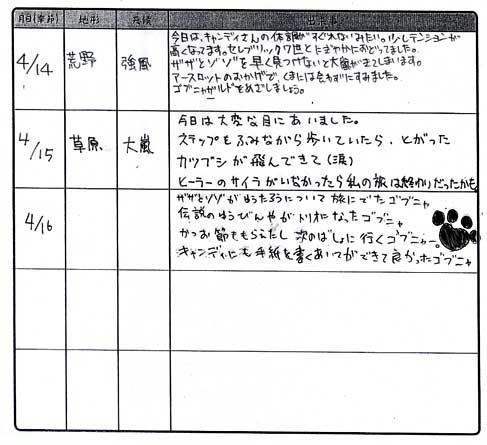 月日(季節) 地形 天候 出来事
4/14 荒野 強風
今日は、キャンディさんの体調がすぐれないみたい。少しテンションが
高くなってます。セレブリックク7世とにぎやかにおどってました。
ザザとゾゾを早く見つけないと大嵐がきてしまいます。
アースロットのおかげで、くまには会わずにすみました。
ゴブニャガルドをめざしましょう。
4/15 草原 大嵐
今日は大変な目にあいました。
ステップをふみながら歩いていたら、とがった
カツブシが飛んできて(涙)
ヒーラーのサイラがいなかったら私の旅は終わりだったかも
4/16
ザザとゾゾがゆうたろうについて旅にでたゴブニャ
伝説のゆうびんやがトリオになったゴブニャ
かつお節ももらえたし次のばしょに行くゴブニャー。
キャンディにも手紙を書くあいてができて良かったゴブニャ